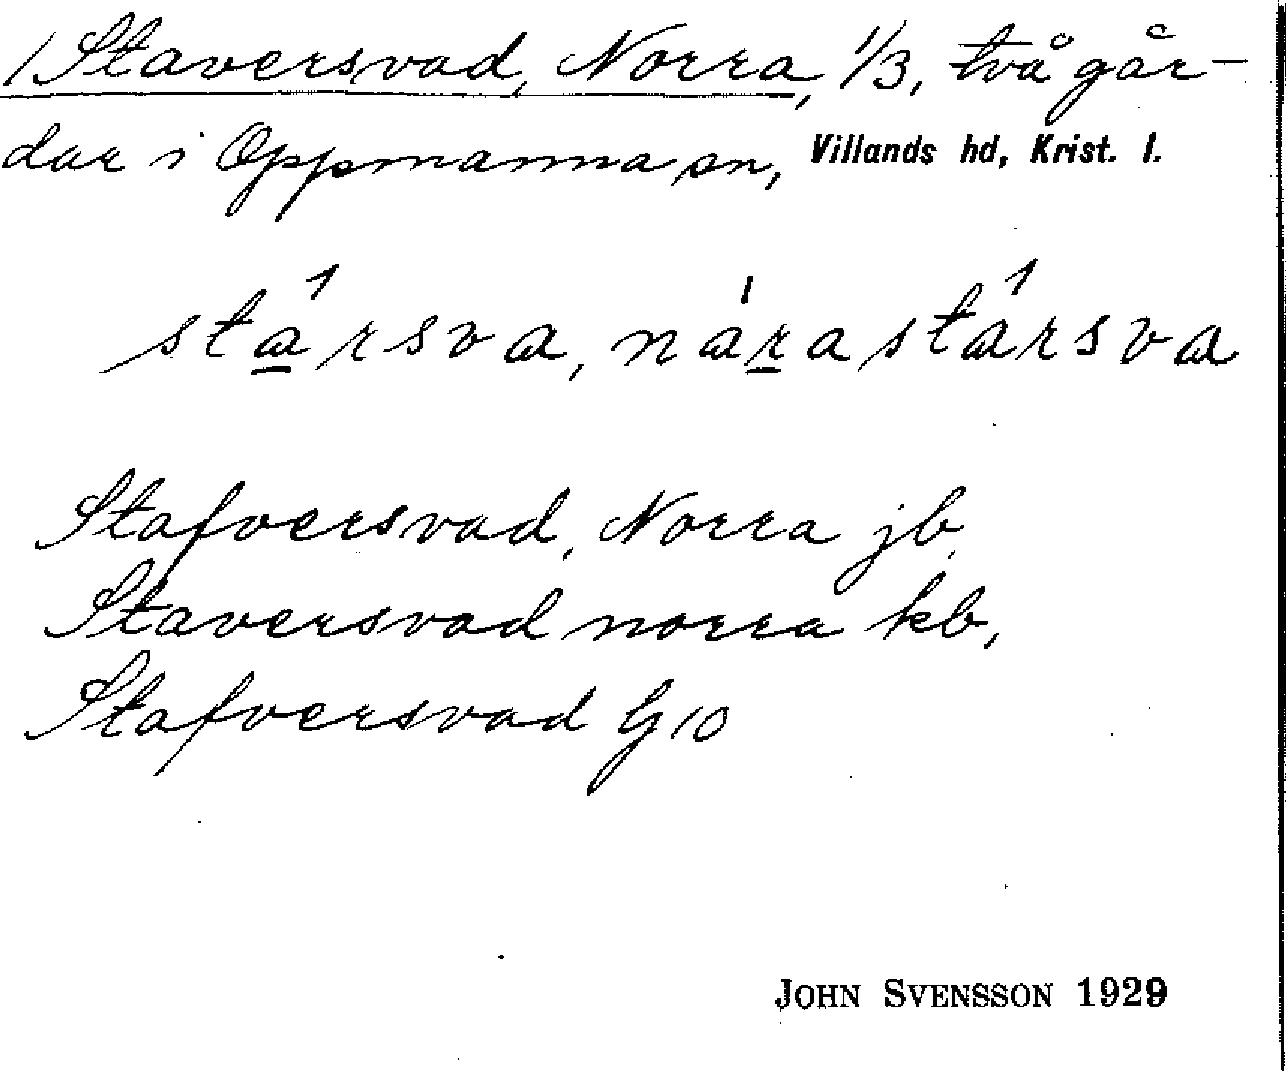 1 Staversvad, Norra, 1/3, två går-
dar i Oppmanna sn, Villands hd, Krist. l.
stársva, nárastársva
Stafversvad, Norra jb,
Staversvad norra kb,
Stafversvad G 10
JOHN SVENSSON 1929